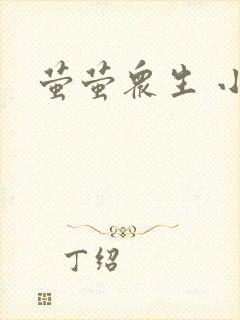 萤萤众生 小
丁绍